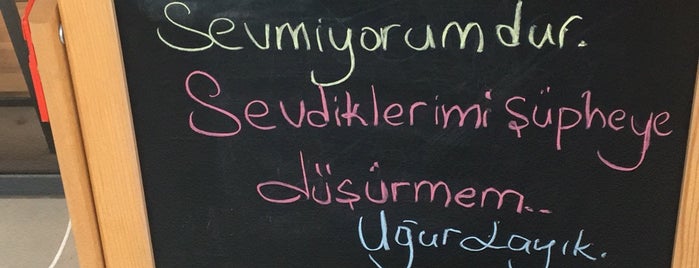 Sevmiyorumdur.
Sevdiklerimi şüpheye
düşürmem..
Uğur Layık.